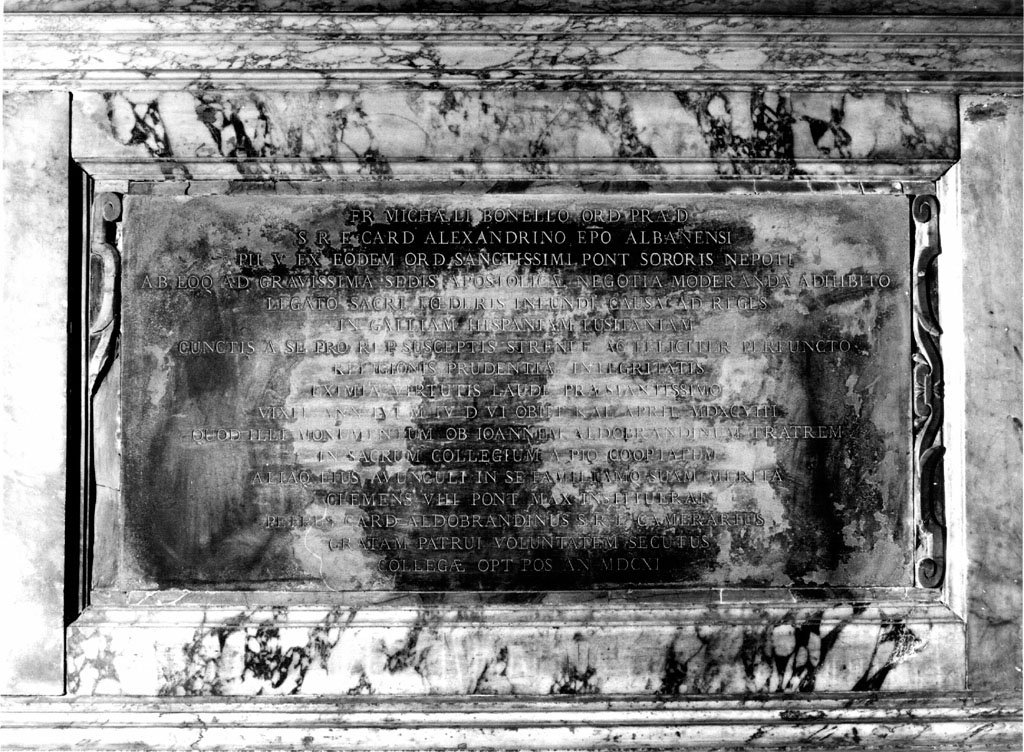 FR MICHAELI BONELLO ORD PRÆD
S R E CARD ALEXANDRINO EPO ALBANENSI
PII V EX EODEM ORD SANCTISSIMI PONT SORORIS NEPOTI
AB EOQ AD GRAVISSIMA SEDIS APOSTOLICÆ NEGOTIA MODERANDA ADHIBITO
LEGATO SACRI FOEDERIS INEUNDI CAUSA AD REGES
IN GALLIAM HISPANIAM LUSITANIAM
CUNCTIS A SE PRO REP SUSCEPTIS STRENUE AC FELICITER PERFUNCTO
RELIGIONIS PRUDENTIÆ INTEGRITATIS
EXIMIA VIRTUTIS LAUDE PRÆSTANTISSIMO
VIXIT ANN LVI M IV D VI OBIIT KAL APRIL MDXCVIII
QUOD ILLI MONUMENTUM OB IOANNEM ALDOBRANDINUM FRATREM
IN SACRUM COLLEGIUM A PIO COOPTATUM
ALIAQ EIUS AVUNCULI IN SE FAMILIAMQ SUAM MERITA
CLEMENS VIII PONT MAX INSTITUERAT
PETRUS CARD ALDOBRANDINUS S R E CAMERARIUS
GRATAM PATRUI VOLUNTATEM SECUTUS
COLLEGÆ OPT POS AN MDCXI